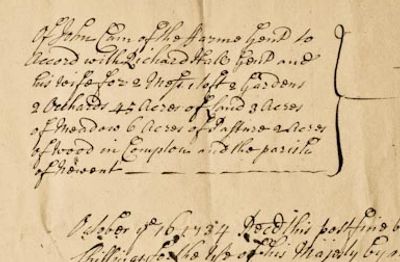 Of John Cam of the same Gent to
Accord with Richard Hall Gent and
his wife for 2 Mess 1 toft 2 Gardens
2 Orchards 45 Acres of Land 8 Acres
of Meadow 6 Acres of Pasture 2 Acres
of Wood in Compton and the parish
of Newent
October ye 16 1734 Recd this postfine 6
shillings for the use of his Majesty by